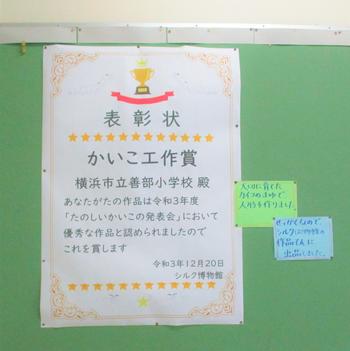 表彰状
かいこ工作賞
横浜市立善部小学校 殿
あなたがたの作品は令和3年度
「たのしいかいこの発表会」において
優秀な作品と認められましたので
これを賞します
令和3年12月20日
シルク博物館
大切に育てた
カイコのまゆで
人形を作りました。
せっかくなので、
シルク博物館の
作品てんに
出品しました。